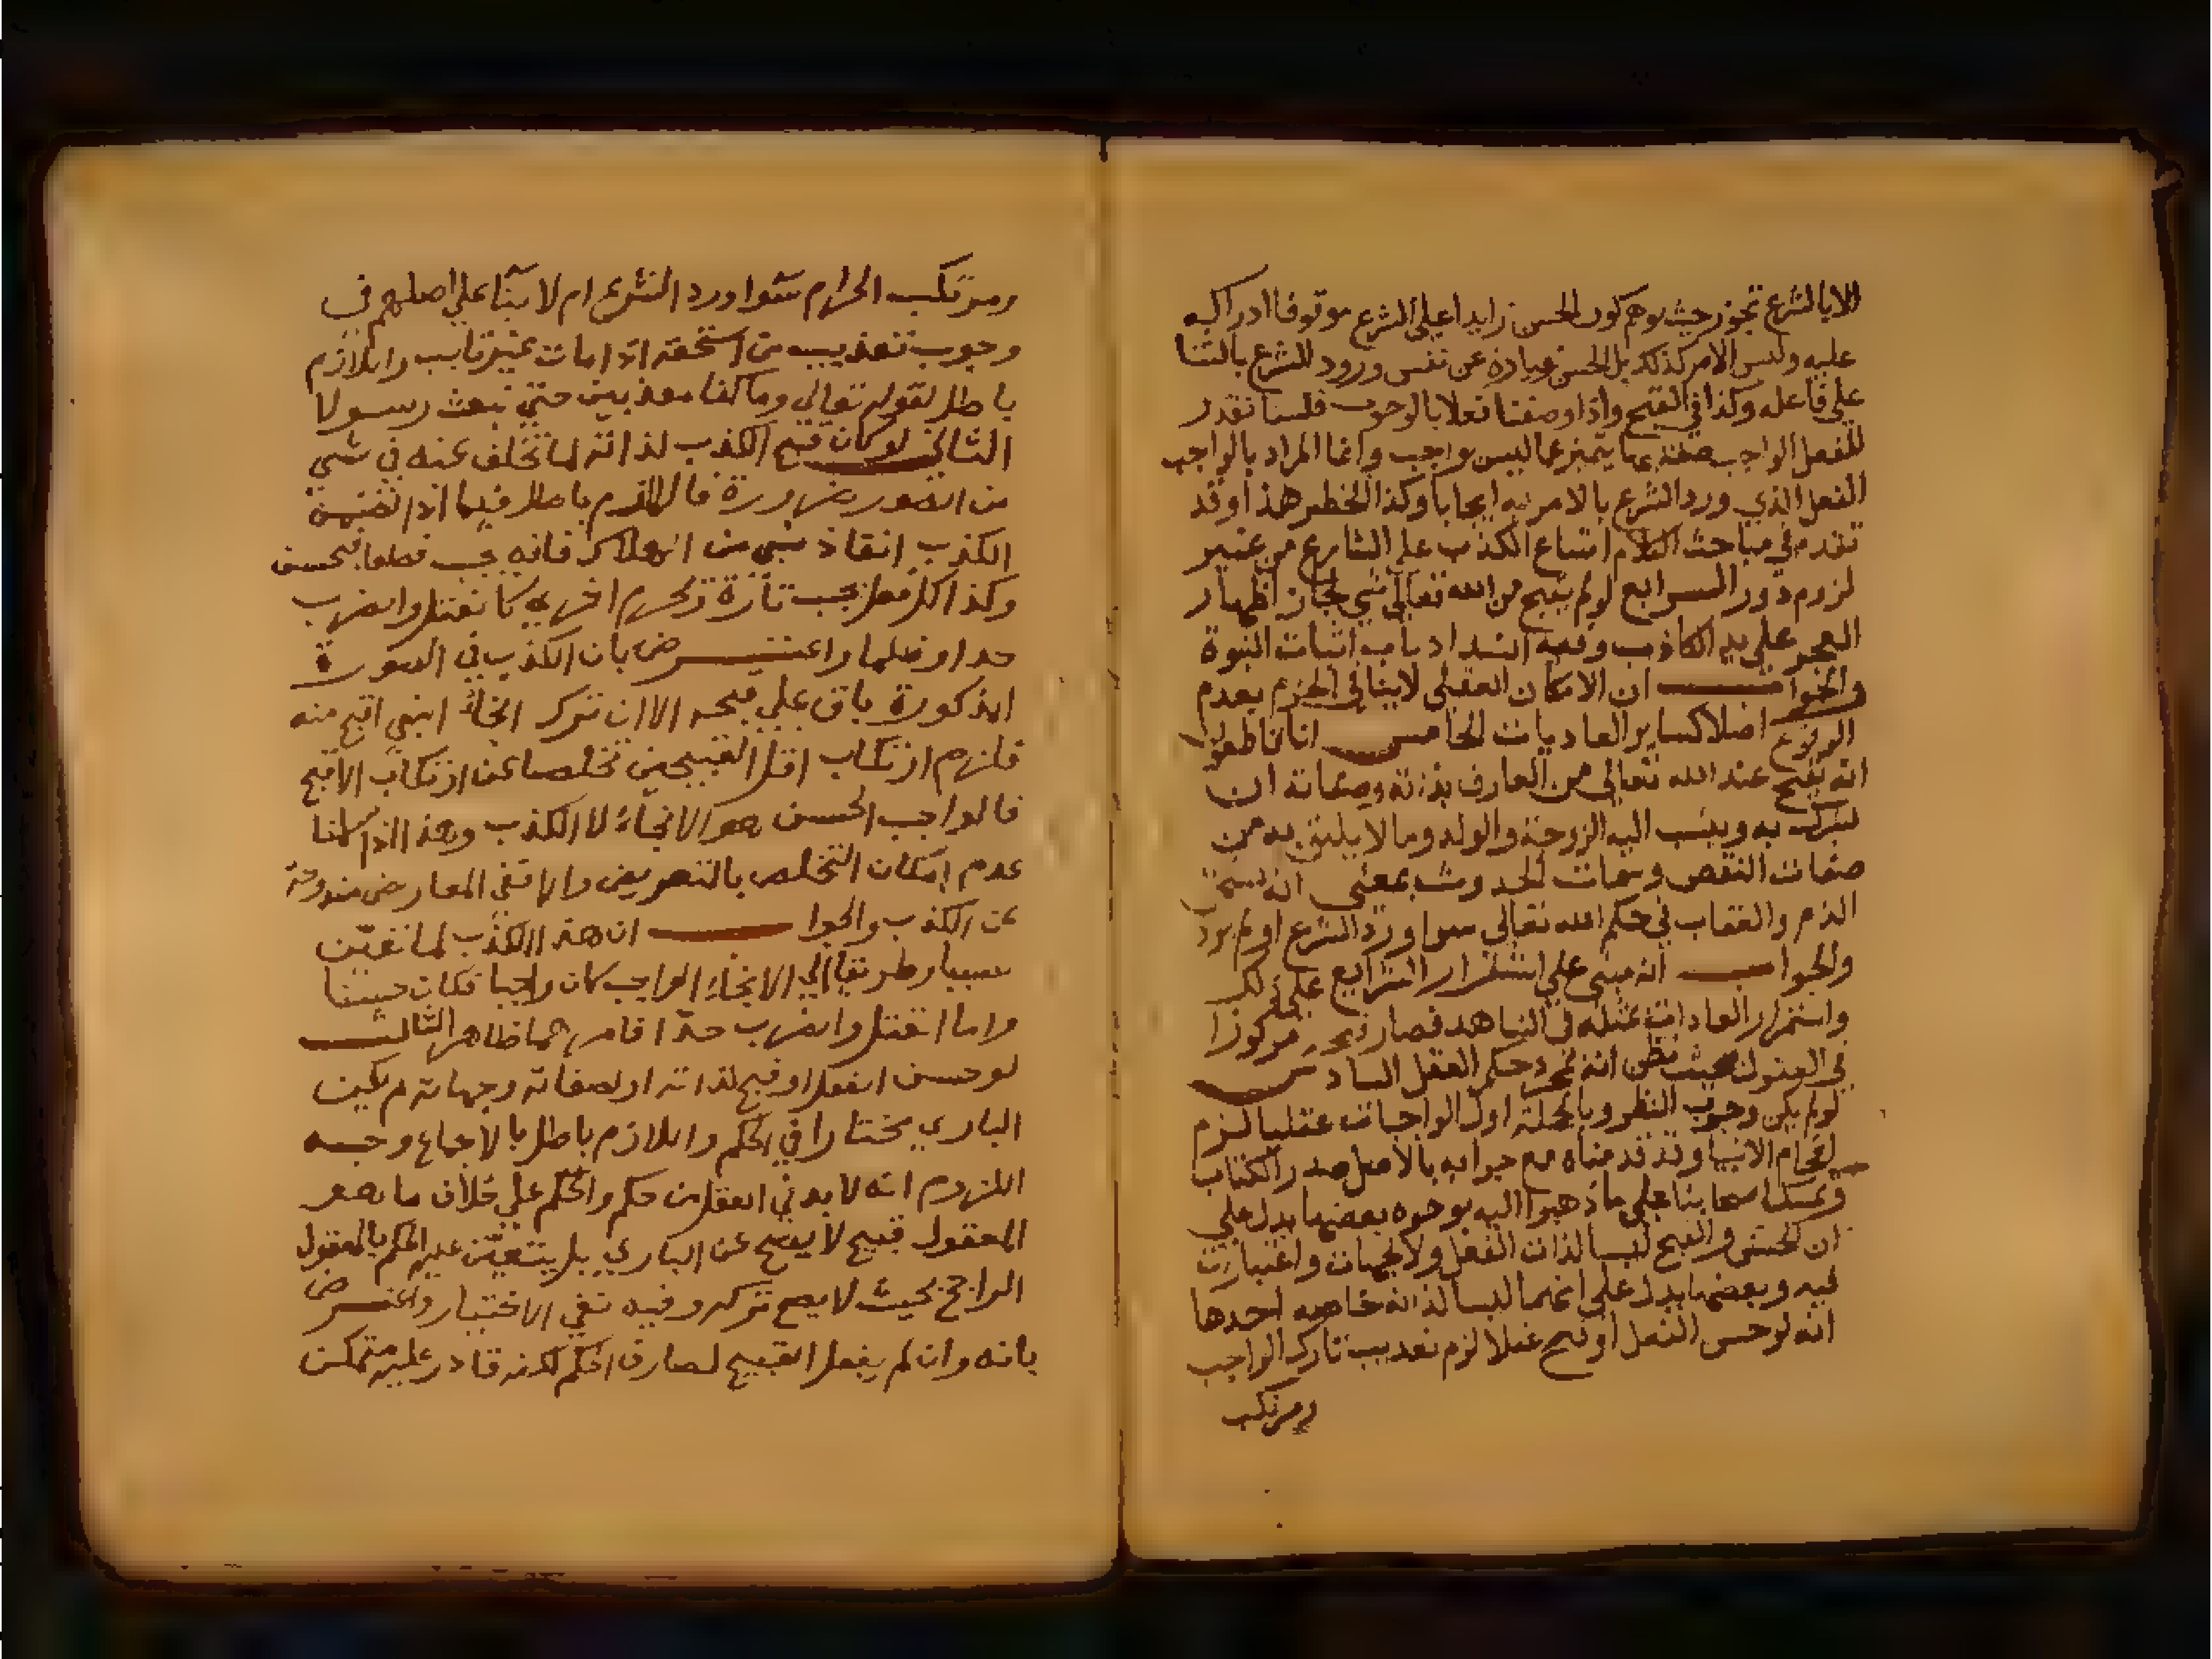 الا بالشرع تجوز حيث يوهم كون الحسن زايدا علي الشرع موقوفا ادراكه
عليه وليس الامر كذلك بل الحسن عبارة عن نفس ورود الشرع بالثنا
علي فاعله وكذا في القبح واذا وصفنا فعلا بالوجوب فلسنا نقدر
للفعل الواجب صفة بها يتميز عما ليس بواجب وانما المراد بالواجب
الفعل الذي ورد الشرع بالامر به ايجابا وكذا الحظر هذا وقد
تقدم في مباحث الكلام امتناع الكذب علي الشارع من غير
لزوم دور الرابع لو لم يقبح من الله تعالي شي لجاز اظهار
المعجز علي يد الكاذب وفيه انسداد باب اثبات النبوة
والجواب ان الامكان العقلي لا ينافي الجزم بعدم
الوقوع اصلا كساير العاديات الخامس انا قاطعون
انه يقبح عند الله تعالي من العارف بذاته وصفاته ان
يشرك به وينسب اليه الزوجة والولد وما لا يليق به من
صفات النقص وسمات الحدوث بمعني انه يستحق
الذم والعقاب في حكم الله تعالي سوا ورد الشرع او لم يرد
والجواب انه مبني علي استقرار الشرايع علي ذلك
واستمرار العادات بمثله في الشاهد فصار قبحه مركوزا
في العقول بحيث يظن انه بمجرد حكم العقل السادس
لو لم يكن وجوب النظر وبالجملة اول الواجبات عقليا لزم
افحام الانبيا وقد قدمناه مع جوابه بالاصل صدر الكتاب
وتمسك اصحابنا علي ما ذهبوا اليه بوجوه بعضها يدل علي
ان الحسن والقبح ليسا لذات الفعل ولا لجهات واعتبارات
فيه وبعضها يدل علي انهما ليسا لذاته خاصه احدها
انه لو حسن الفعل او قبح عقلا لزم تعذيب تارك الواجب
ومرتكب
ومرتكب الحرام سوا ورد الشرع ام لا بنآ علي اصلهم في
وجوب تعذيب من استحقه اذا مات غير تايب واللازم
باطل لقوله تعالي وما كنا معذبين حتي نبعث رسولا
الثاني لو كان قبح الكذب لذاته لما تخلف عنه في شي
من الصور ضرورة فاللازم باطل فيما اذا تضمن
الكذب انقاذ نبي من الهلاك فانه يجب قطعا فيحسن
وكذا كل فعل يجب تارة ويحرم اخري كالقتل والضرب
حدا وظلما واعترض بان الكذب في الصورة
المذكورة باق علي قبحه الا ان ترك انجاء النبي اقبح منه
فلزم ارتكاب اقل القبيحين تخلصا عن ارتكاب الاقبح
فالواجب الحسن هو الانجاء لا الكذب وهذا اذا سلمنا
عدم امكان التخلص بالتعريض والا ففي المعاريض مندوحة
عن الكذب والجواب ان هذا الكذب لما تعيّن
سببا وطريقا الي الانجاء الواجب كان واجبا فكان حسنا
واما القتل والضرب حدّا فامرهما ظاهر الثالث
لو حسن الفعل او قبح لذاته او لصفاته وجهاته لم يكن
الباري مختارا في الحكم واللازم باطل بالاجماع وجه
اللزوم انه لا بد في العقل من حكم والحكم علي خلاف ما هو
المعقول قبيح لا يصح عن الباري بل يتعيّن عليه الحكم بالمعقول
الراجح بحيث لا يصح تركه وفيه نفي الاختيار واعترض
بانه وان لم يفعل القبيح لصارف الحكم لكنه قادر عليه متمكن